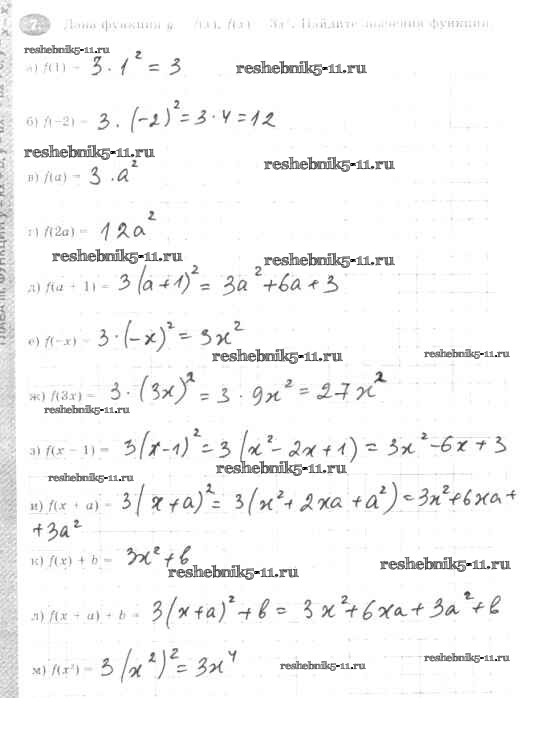 7. Дана функция y = f(x), f(x) = 3x². Найдите значения функции.
reshebnik5-11.ru
а) f(1) = 3 · 1² = 3 reshebnik5-11.ru
б) f(-2) = 3 · (-2)² = 3 · 4 = 12
reshebnik5-11.ru reshebnik5-11.ru
в) f(a) = 3 · a²
г) f(2a) = 12a²
reshebnik5-11.ru reshebnik5-11.ru
д) f(a + 1) = 3(a+1)² = 3a² + 6a + 3
е) f(-x) = 3 · (-x)² = 3x²
reshebnik5-11.ru reshebnik5-11.ru
ж) f(3x) = 3 · (3x)² = 3 · 9x² = 27x²
reshebnik5-11.ru
з) f(x - 1) = 3(x-1)² = 3(x² - 2x + 1) = 3x² - 6x + 3
reshebnik5-11.ru reshebnik5-11.ru
и) f(x + a) = 3(x+a)² = 3(x² + 2xa + a²) = 3x² + 6xa +
+ 3a²
к) f(x) + b = 3x² + b
reshebnik5-11.ru reshebnik5-11.ru
л) f(x + a) + b = 3(x+a)² + b = 3x² + 6xa + 3a² + b
м) f(x²) = 3(x²)² = 3x⁴ reshebnik5-11.ru reshebnik5-11.ru